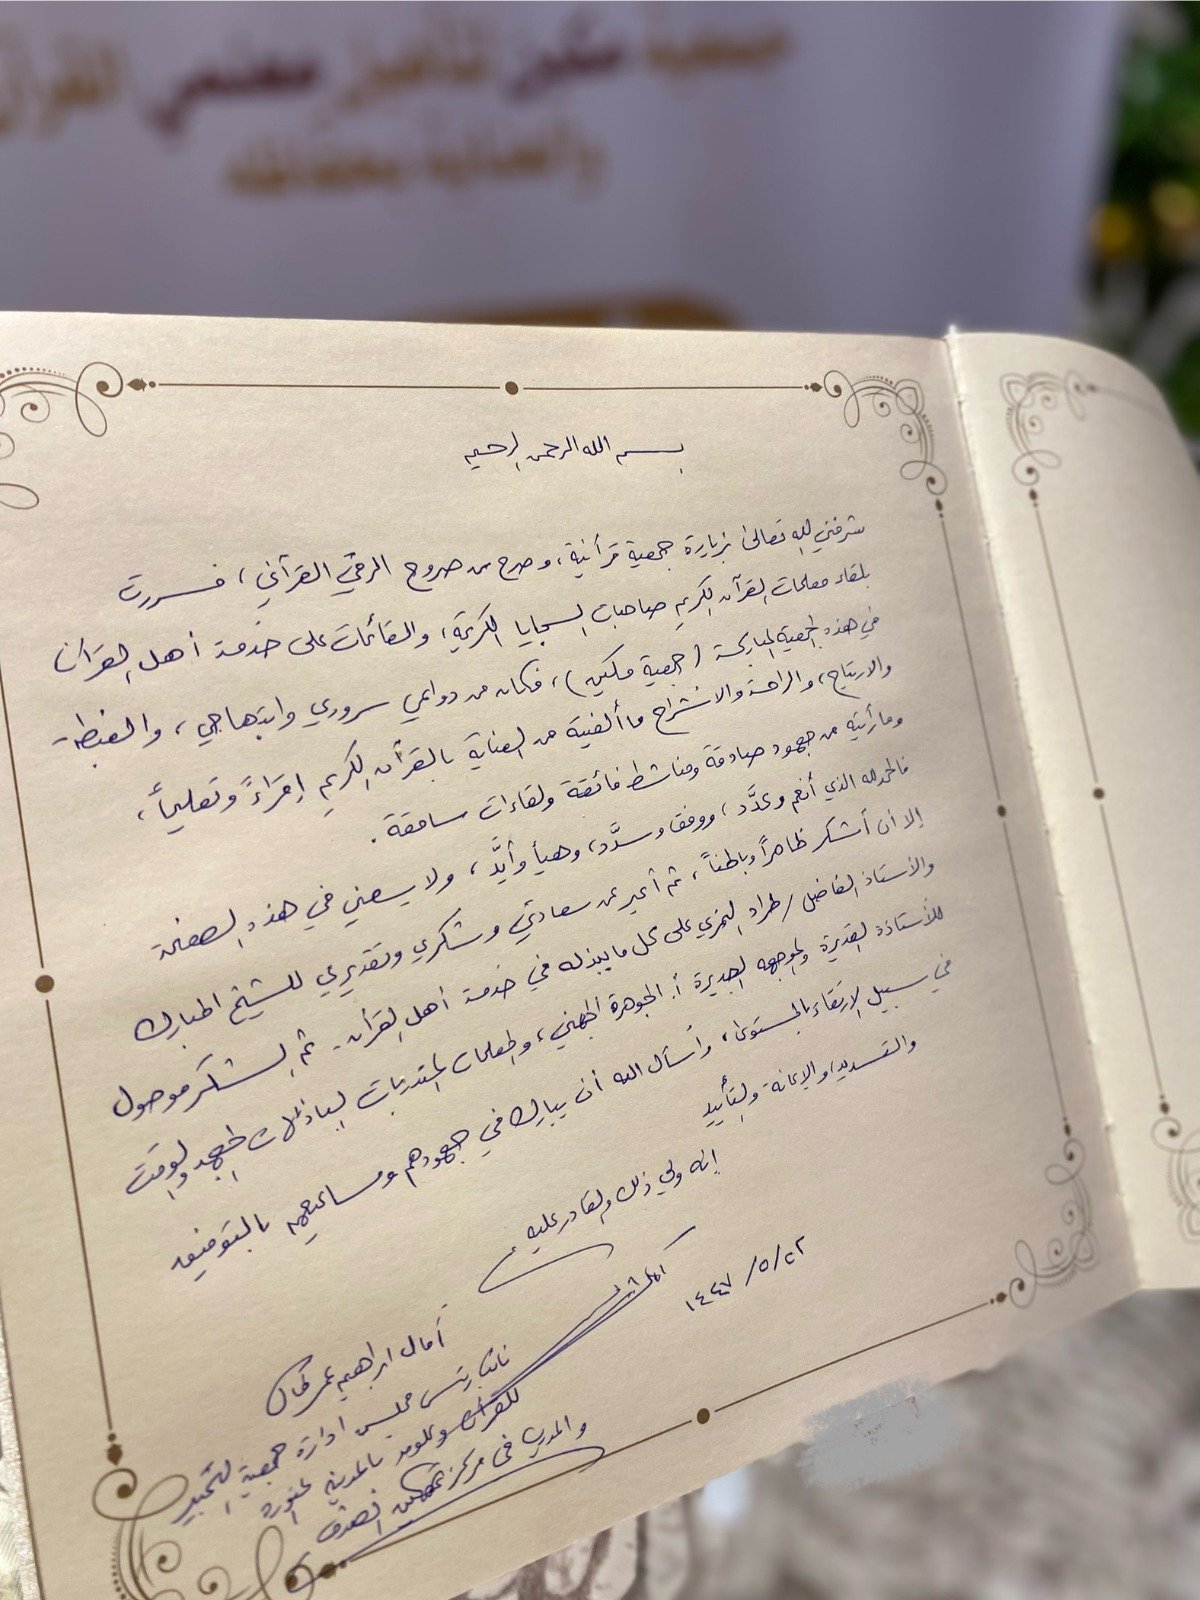 جمعية مكين لتأهيل معلمي القرآن
والعناية بحفاظه
بسم الله الرحمن الرحيم
شرفني الله تعالى بزيارة جمعية قرآنية، وصرح من صروح الرقي القرآني، فسررت
بلقاء معلمات القرآن الكريم صاحبات السجايا الكريمة، والقائمات على خدمة أهل القرآن
في هذه الجمعية المباركة (جمعية مكين)، فكان من دواعي سروري وابتهاجي، والغبطة
والارتياح، والراحة والانشراح ما ألفيته من العناية بالقرآن الكريم إقراءً وتعليماً،
وما رأيته من جهود صادقة ومناشط فائقة ولقاءات سامقة.
فالحمد لله الذي أنعم وعدَّد، ووفق وسدَّد، وهيأ وأيَّد، ولا يسعني في هذه الصفحة
إلا أن أشكر ظاهراً وباطناً، ثم أعبر عن سعادتي وشكري وتقديري للشيخ المبارك
والأستاذ الفاضل / طراد العنزي على كل ما يبذله في خدمة أهل القرآن. ثم الشكر موصول
للأستاذة القديرة والموجهه الجديرة أ. الجوهرة الجهني، والمعلمات المتدربات الباذلات الجهد والوقت
في سبيل الارتقاء بالمستوى، وأسأل الله أن يبارك في جهودهم ومساعيهم بالتوفيق
والتسديد والإعانة والتأييد
إنه ولي ذلك والقادر عليه
١٤٤٧/٥/٢٢
آمال ابراهيم عمر كمال
نائب رئيس مجلس ادارة جمعية التحبير
للقرآن وعلومه بالمدينة المنورة
والمدربة في مركز